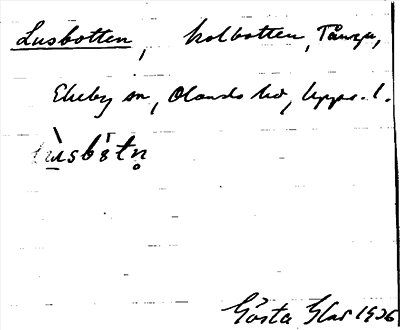 Lusbotten, kolbotten, Tånga,
Ekeby sn, Olands hd, Upps. l.
lùsbòtn̥
Gösta Glas 1926